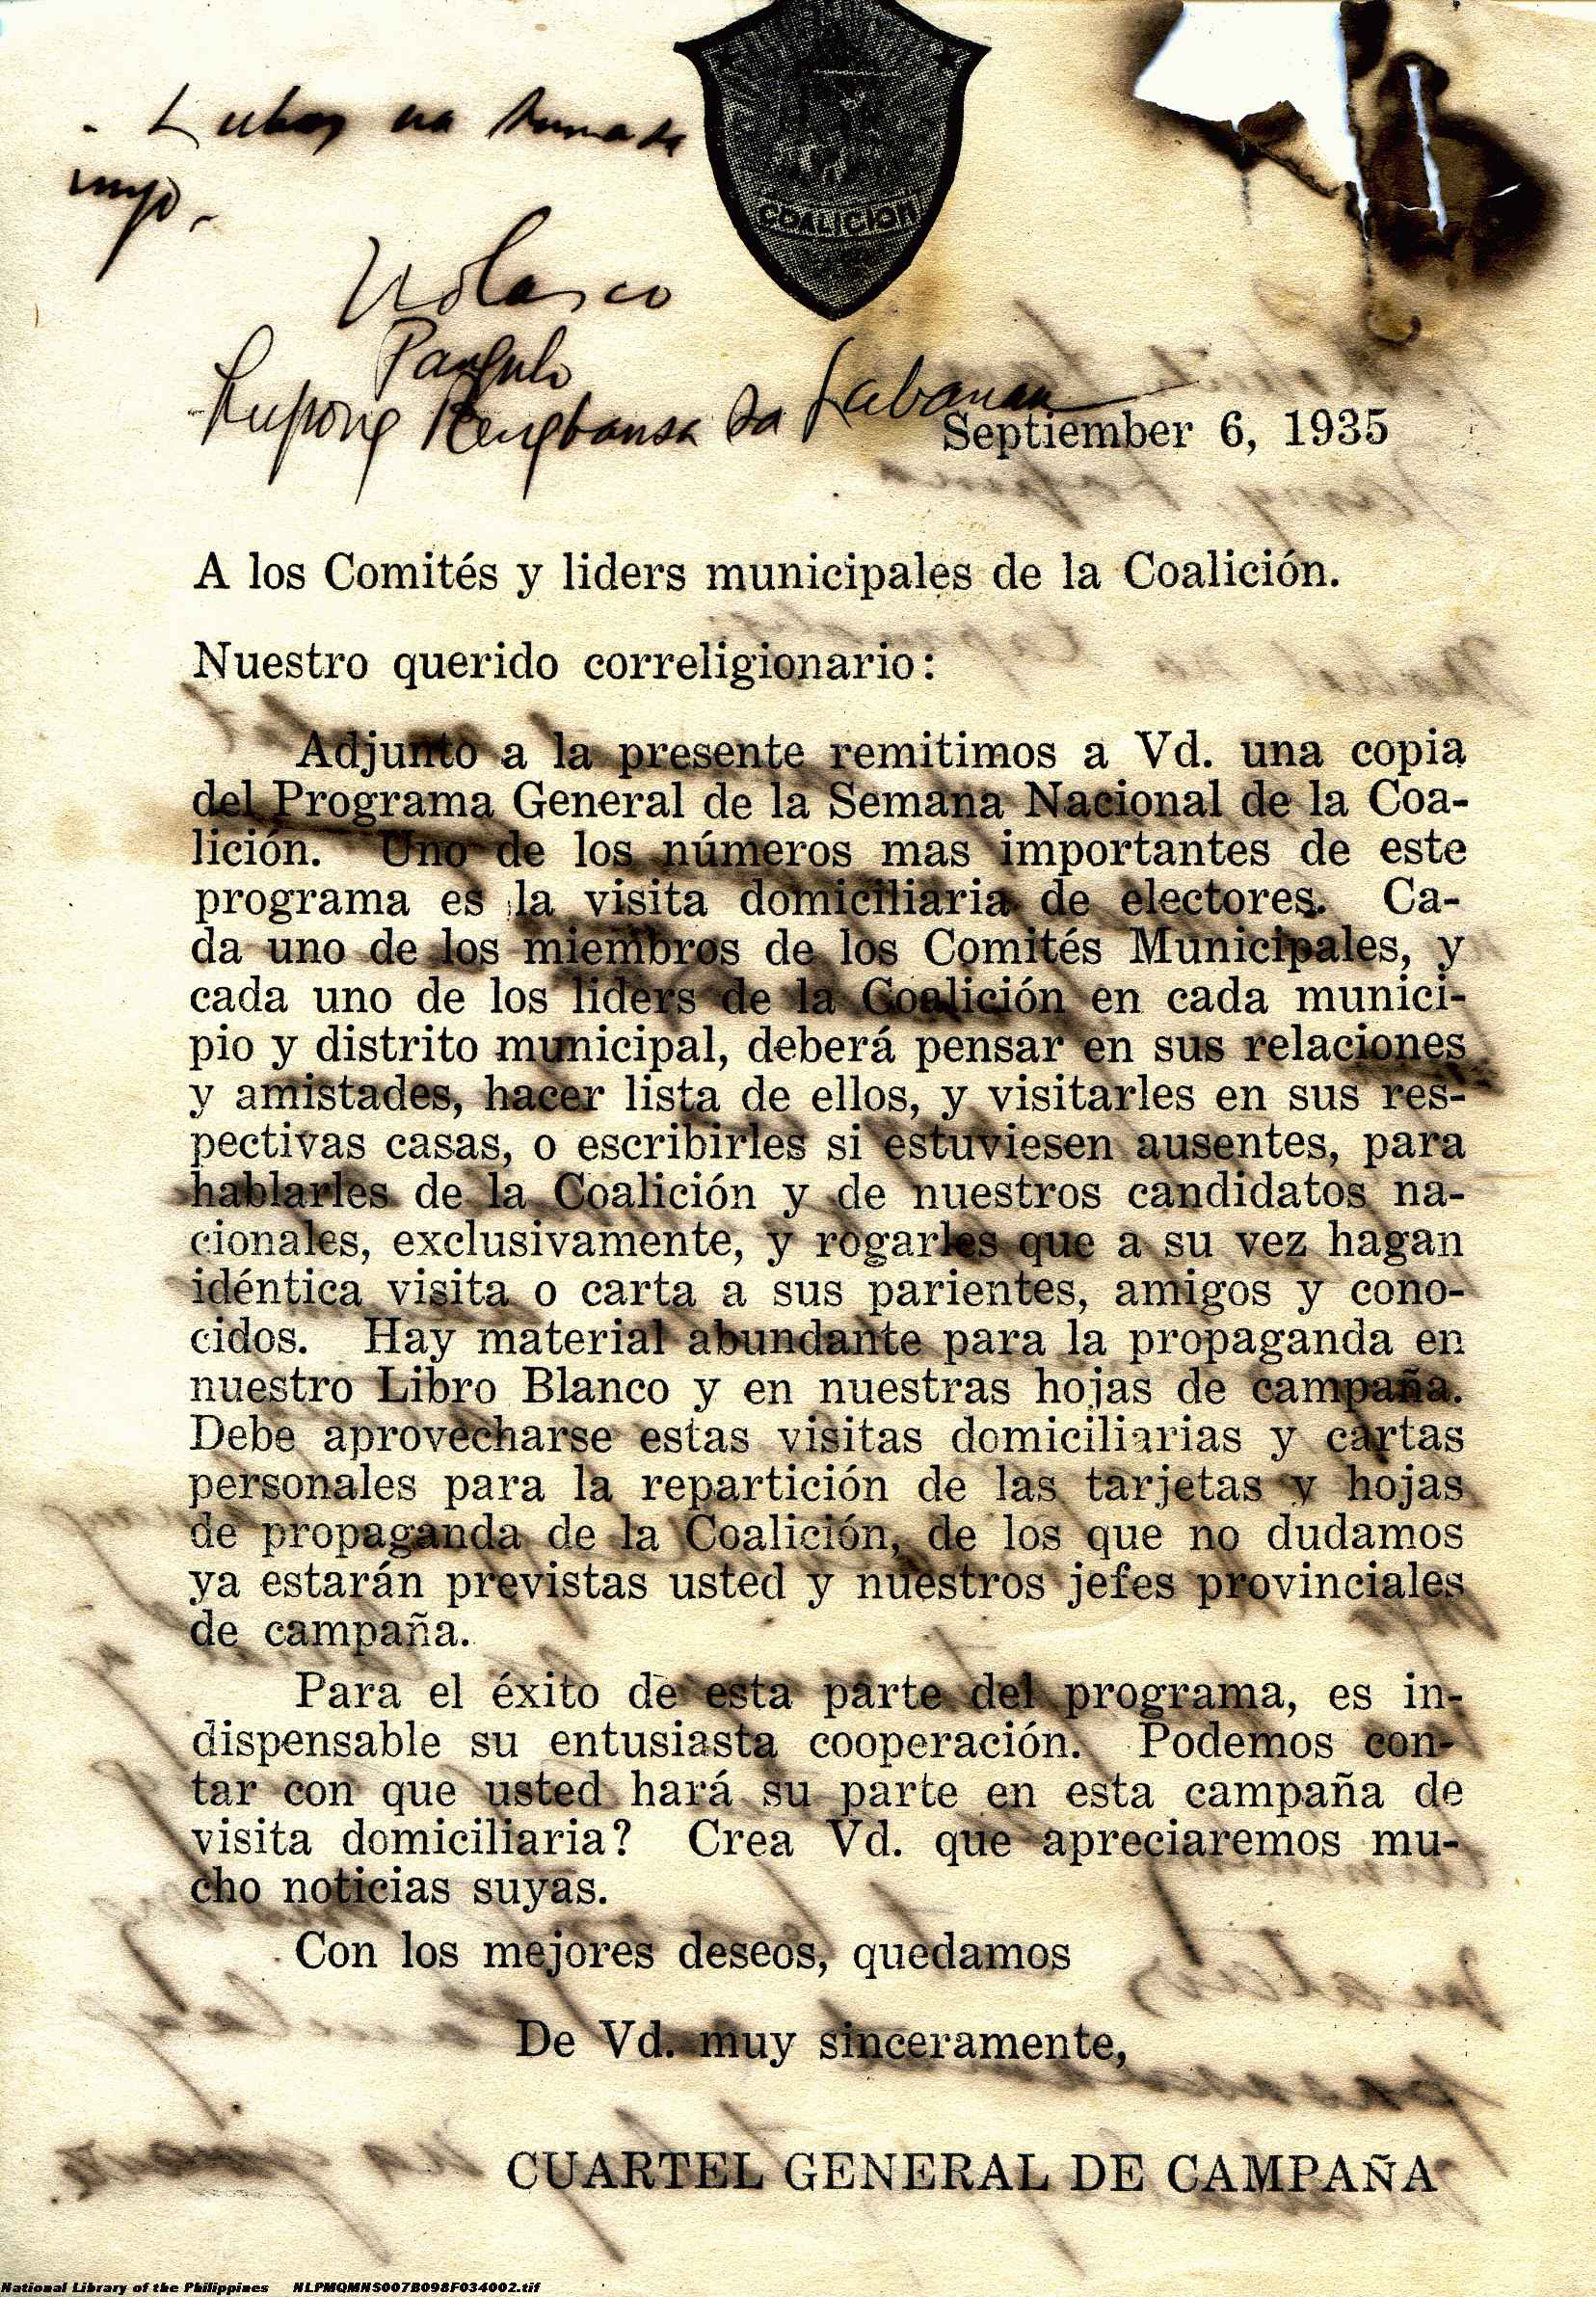 Lubos na sumasa
inyo,
COALICION
Nolasco
Pangulo
Lupong Pangbansa sa Labanan
Septiember 6, 1935
A los Comités y liders municipales de la Coalición.
Nuestro querido correligionario:
Adjunto a la presente remitimos a Vd. una copia
del Programa General de la Semana Nacional de la Coa-
lición. Uno de los números mas importantes de este
programa es la visita domiciliaria de electores. Ca-
da uno de los miembros de los Comités Municipales, y
cada uno de los liders de la Coalición en cada munici-
pio y distrito municipal, deberá pensar en sus relaciones
y amistades, hacer lista de ellos, y visitarles en sus res-
pectivas casas, o escribirles si estuviesen ausentes, para
hablarles de la Coalición y de nuestros candidatos na-
cionales, exclusivamente, y rogarles que a su vez hagan
idéntica visita o carta a sus parientes, amigos y cono-
cidos. Hay material abundante para la propaganda en
nuestro Libro Blanco y en nuestras hojas de campaña.
Debe aprovecharse estas visitas domiciliarias y cartas
personales para la repartición de las tarjetas y hojas
de propaganda de la Coalición, de los que no dudamos
ya estarán previstas usted y nuestros jefes provinciales
de campaña.
Para el éxito de esta parte del programa, es in-
dispensable su entusiasta cooperación. Podemos con-
tar con que usted hará su parte en esta campaña de
visita domiciliaria? Crea Vd. que apreciaremos mu-
cho noticias suyas.
Con los mejores deseos, quedamos
De Vd. muy sinceramente,
CUARTEL GENERAL DE CAMPAÑA
National Library of the Philippines NLPMQMNS007B098F034002.tif